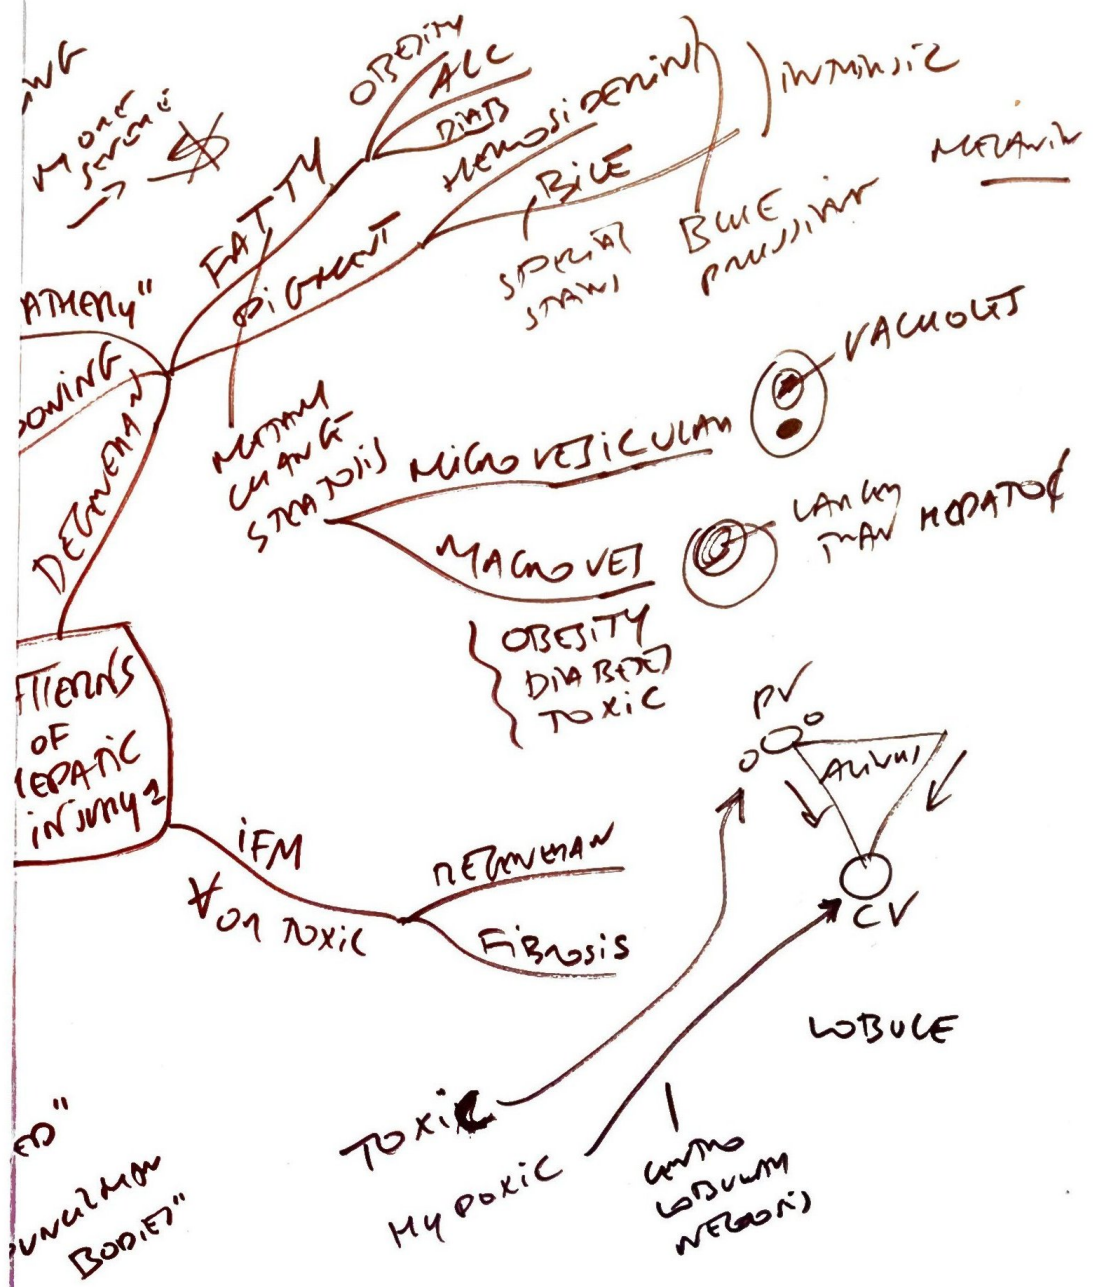 MORE
SEVERE
OBESITY
ALC
DIAB
HEMOSIDERIN
BILE
INTRINSIC
MELANIN
SPECIAL
STAINS
BLUE
PRUSSIAN
FATTY
PIGMENT
ATHERY"
ONING
DEGENERAN
CHANGE
STEATOSIS
MICROVESICULAR
VACUOLES
MACROVES
LARGER
THAN HEPATOC
OBESITY
DIABETES
TOXIC
TTERNS
OF
HEPATIC
INJURY 2
IFM
∀ OR TOXIC
REGENERAN
FIBROSIS
PV
ACINUS
CV
LOBULE
TOXIC
HYPOXIC
CENTRO
LOBULAR
NECROSIS
ED"
OUNCILMAN
BODIES"